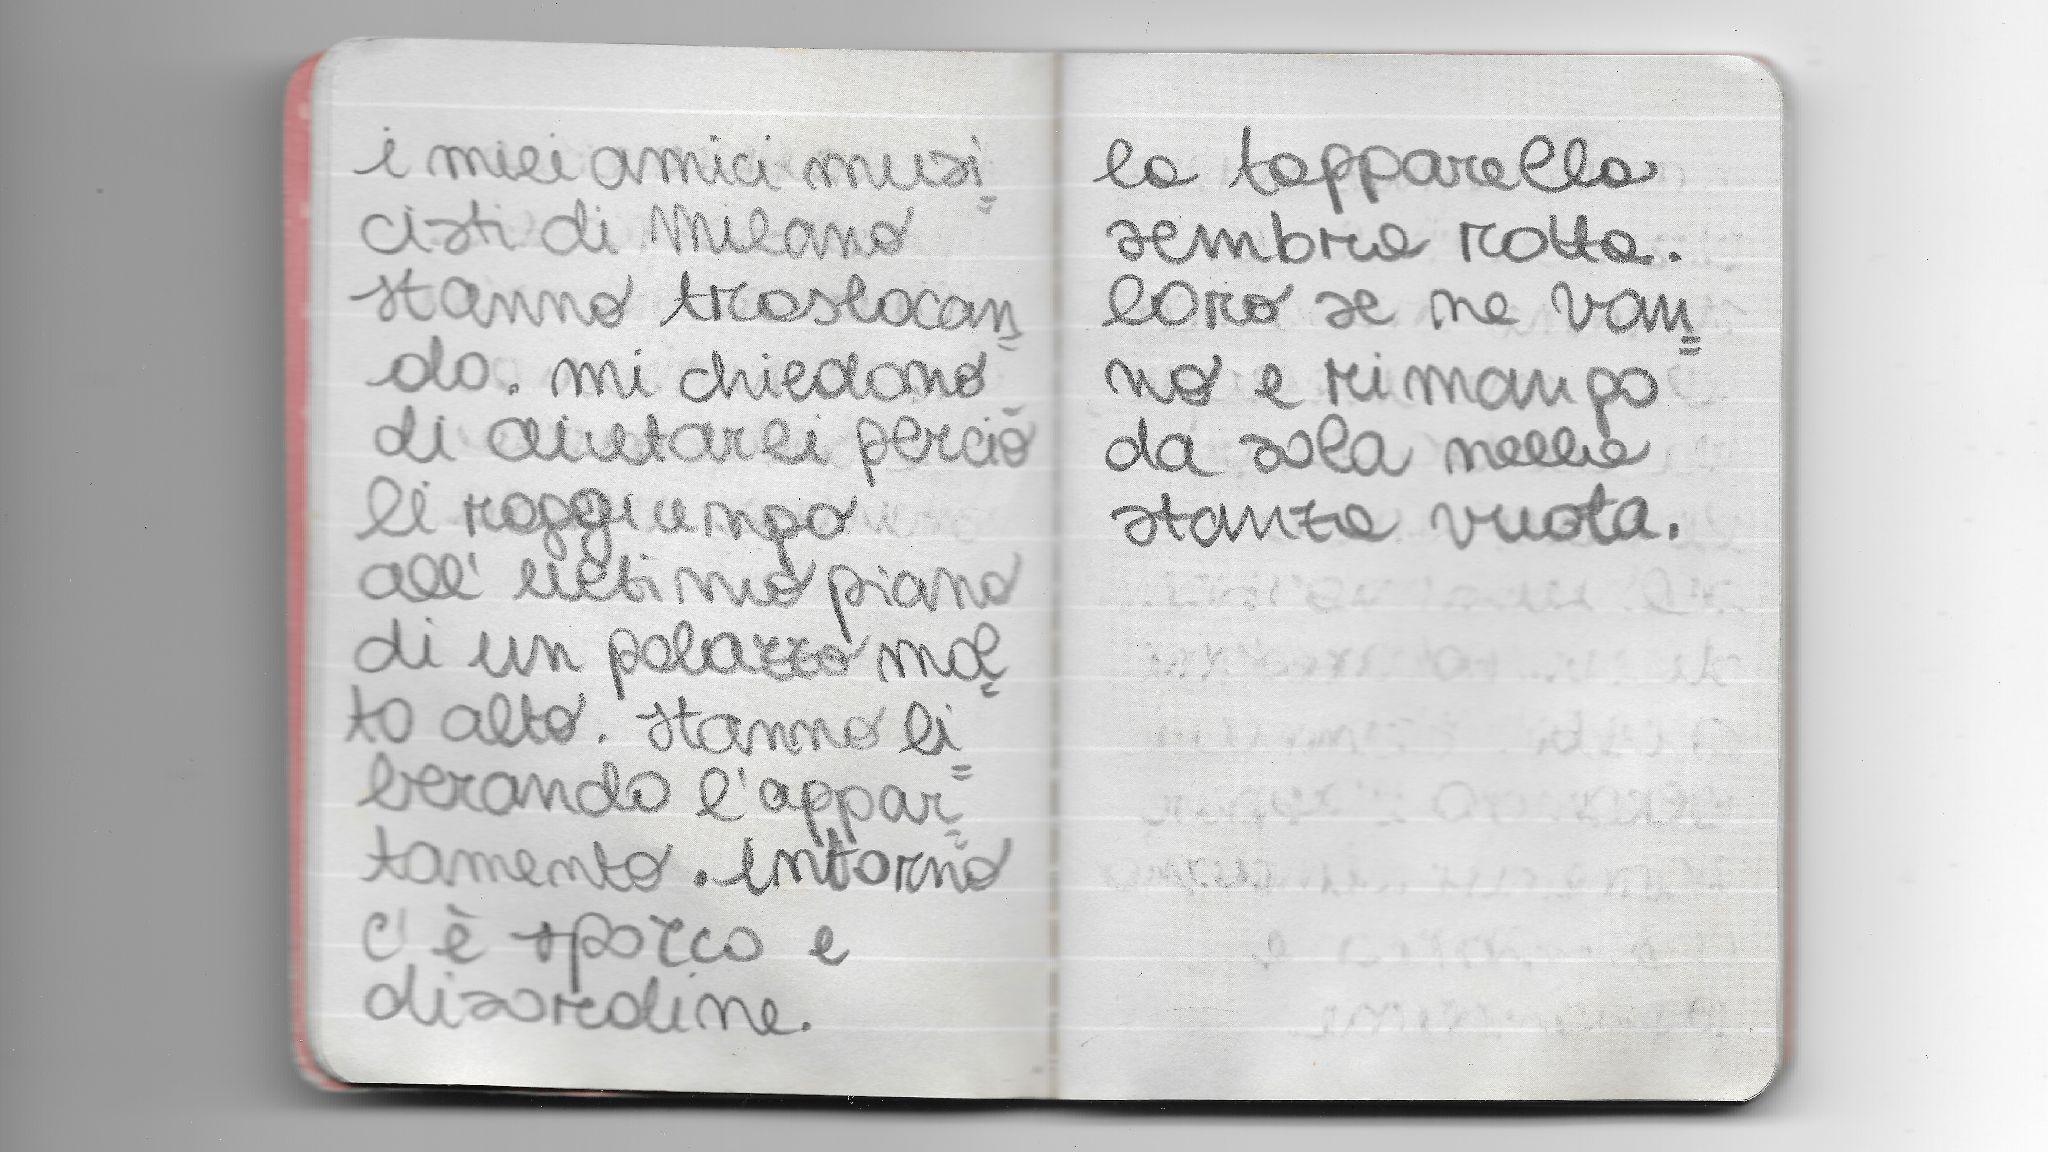 i miei amici musi=
cisti di Milano
stanno traslocan=
do. mi chiedono
di aiutarli perciò
li raggiungo
all'ultimo piano
di un palazzo mol=
to alto. stanno li=
berando l'appar=
tamento. intorno
c'è sporco e
disordine.
la tapparella
sembra rotta.
loro se ne van=
no e rimango
da sola nella
stanza vuota.